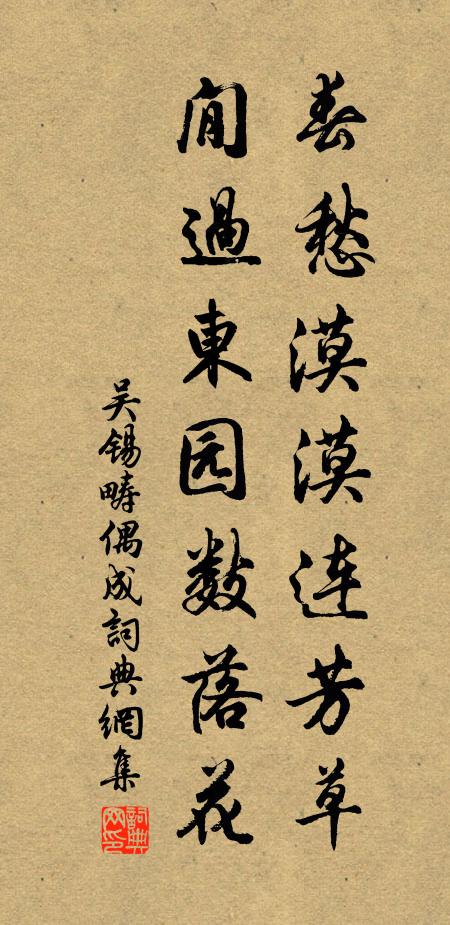 春愁漠漠连芳草
闲过東园数落花
吴锡畴偶成詞典網集
詞典网印